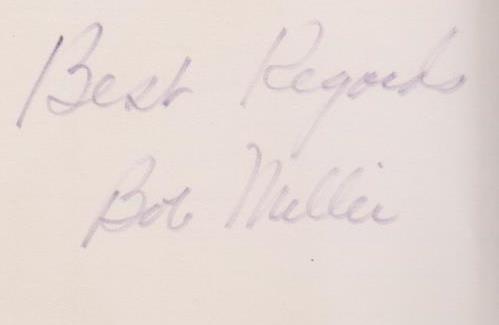 Best Regards
Bob Miller